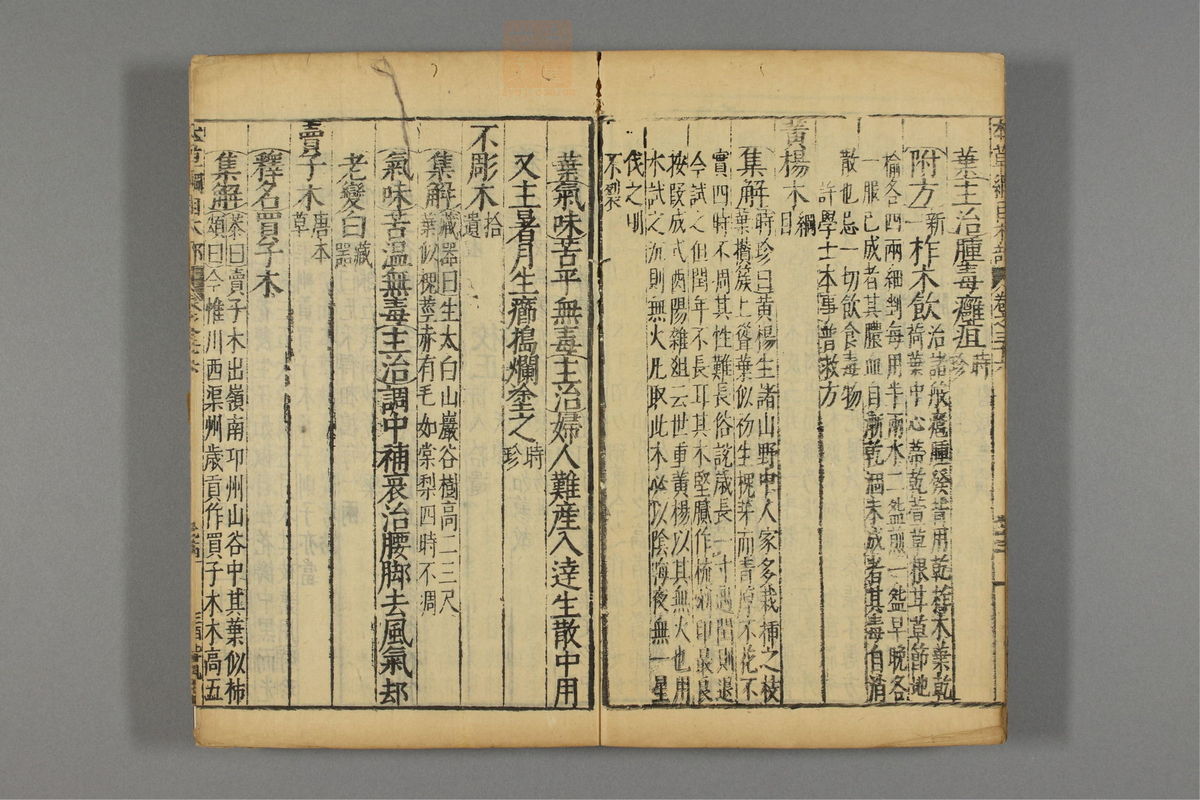 葉主治腫毒癰疽時珍
附方新一柞木飲治諸般癰腫發背用乾柞木葉乾
荷葉中心蒂乾萱草根甘草節地
榆各四兩細剉每用半兩水二盌煎一盌早晚各
一服已成者其膿血自漸乾涸未成者其毒自消
散也忌一切飲食毒物
許學士本事普救方
黃楊木綱目
集解時珍曰黃楊生諸山野中人家多栽種之枝
葉攢簇上聳葉似初生槐芽而青厚不花不
實四時不凋其性難長俗說歲長一寸遇閏則退
今試之但閏年不長耳其木堅膩作梳剜印最良
按段成式酉陽雜俎云世重黃楊以其無火也用
水試之沉則無火凡取此木必以陰晦夜無一星
伐之則
不裂
葉氣味苦平無毒主治婦人難産入達生散中用
又主暑月生癤搗爛塗之時珍
不彫木拾遺
集解藏器曰生太白山巖谷樹高二三尺
葉似槐莖赤有毛如棠梨四時不凋
氣味苦溫無毒主治調中補衰治腰脚去風氣却
老變白藏器
賣子木唐本草
釋名買子木
集解恭曰賣子木出嶺南邛州山谷中其葉似柿
頌曰今惟川西渠州歲貢作買子木木高五